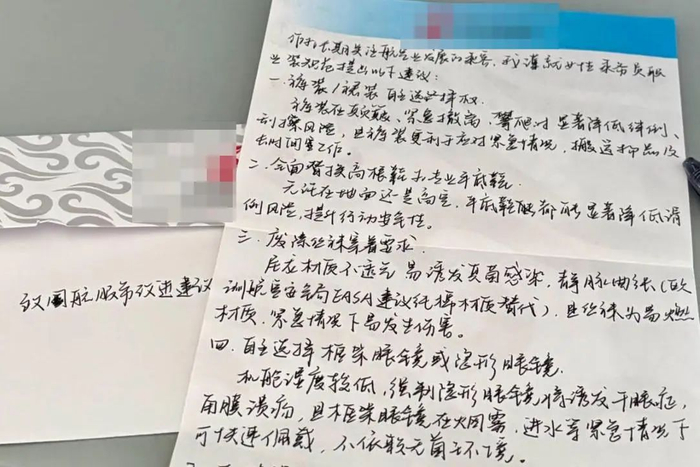 作为长期关注航空业发展的乘客,我谨就女性乘务员职
业装规范提出以下建议:
一.裤装/裙装自主选择权.
裤装在颠簸、紧急撤离、攀爬时显著降低绊倒、
刮擦风险,且裤装更利于应对紧急情况,搬运物品及
长时间客工作。
二.全面替换高跟鞋为专业平底鞋.
无论在地面还是高空,平底鞋能都能显著降低滑
倒风险,提升行动安全性。
三.废除丝袜穿着要求.
尼龙材质不透气易诱发真菌感染,静脉曲张(欧
洲航空安全局EASA建议纯棉材质替代),且丝袜为易燃
材质,紧急情况下易发生伤害。
四.自主选择框架眼镜或隐形眼镜.
机舱湿度较低,强制隐形眼镜将诱发干眼症,
角膜溃疡,且框架眼镜在火烟雾,进水等紧急情况下
可快速佩戴,不依赖无菌环境。
致国航服饰改进建议